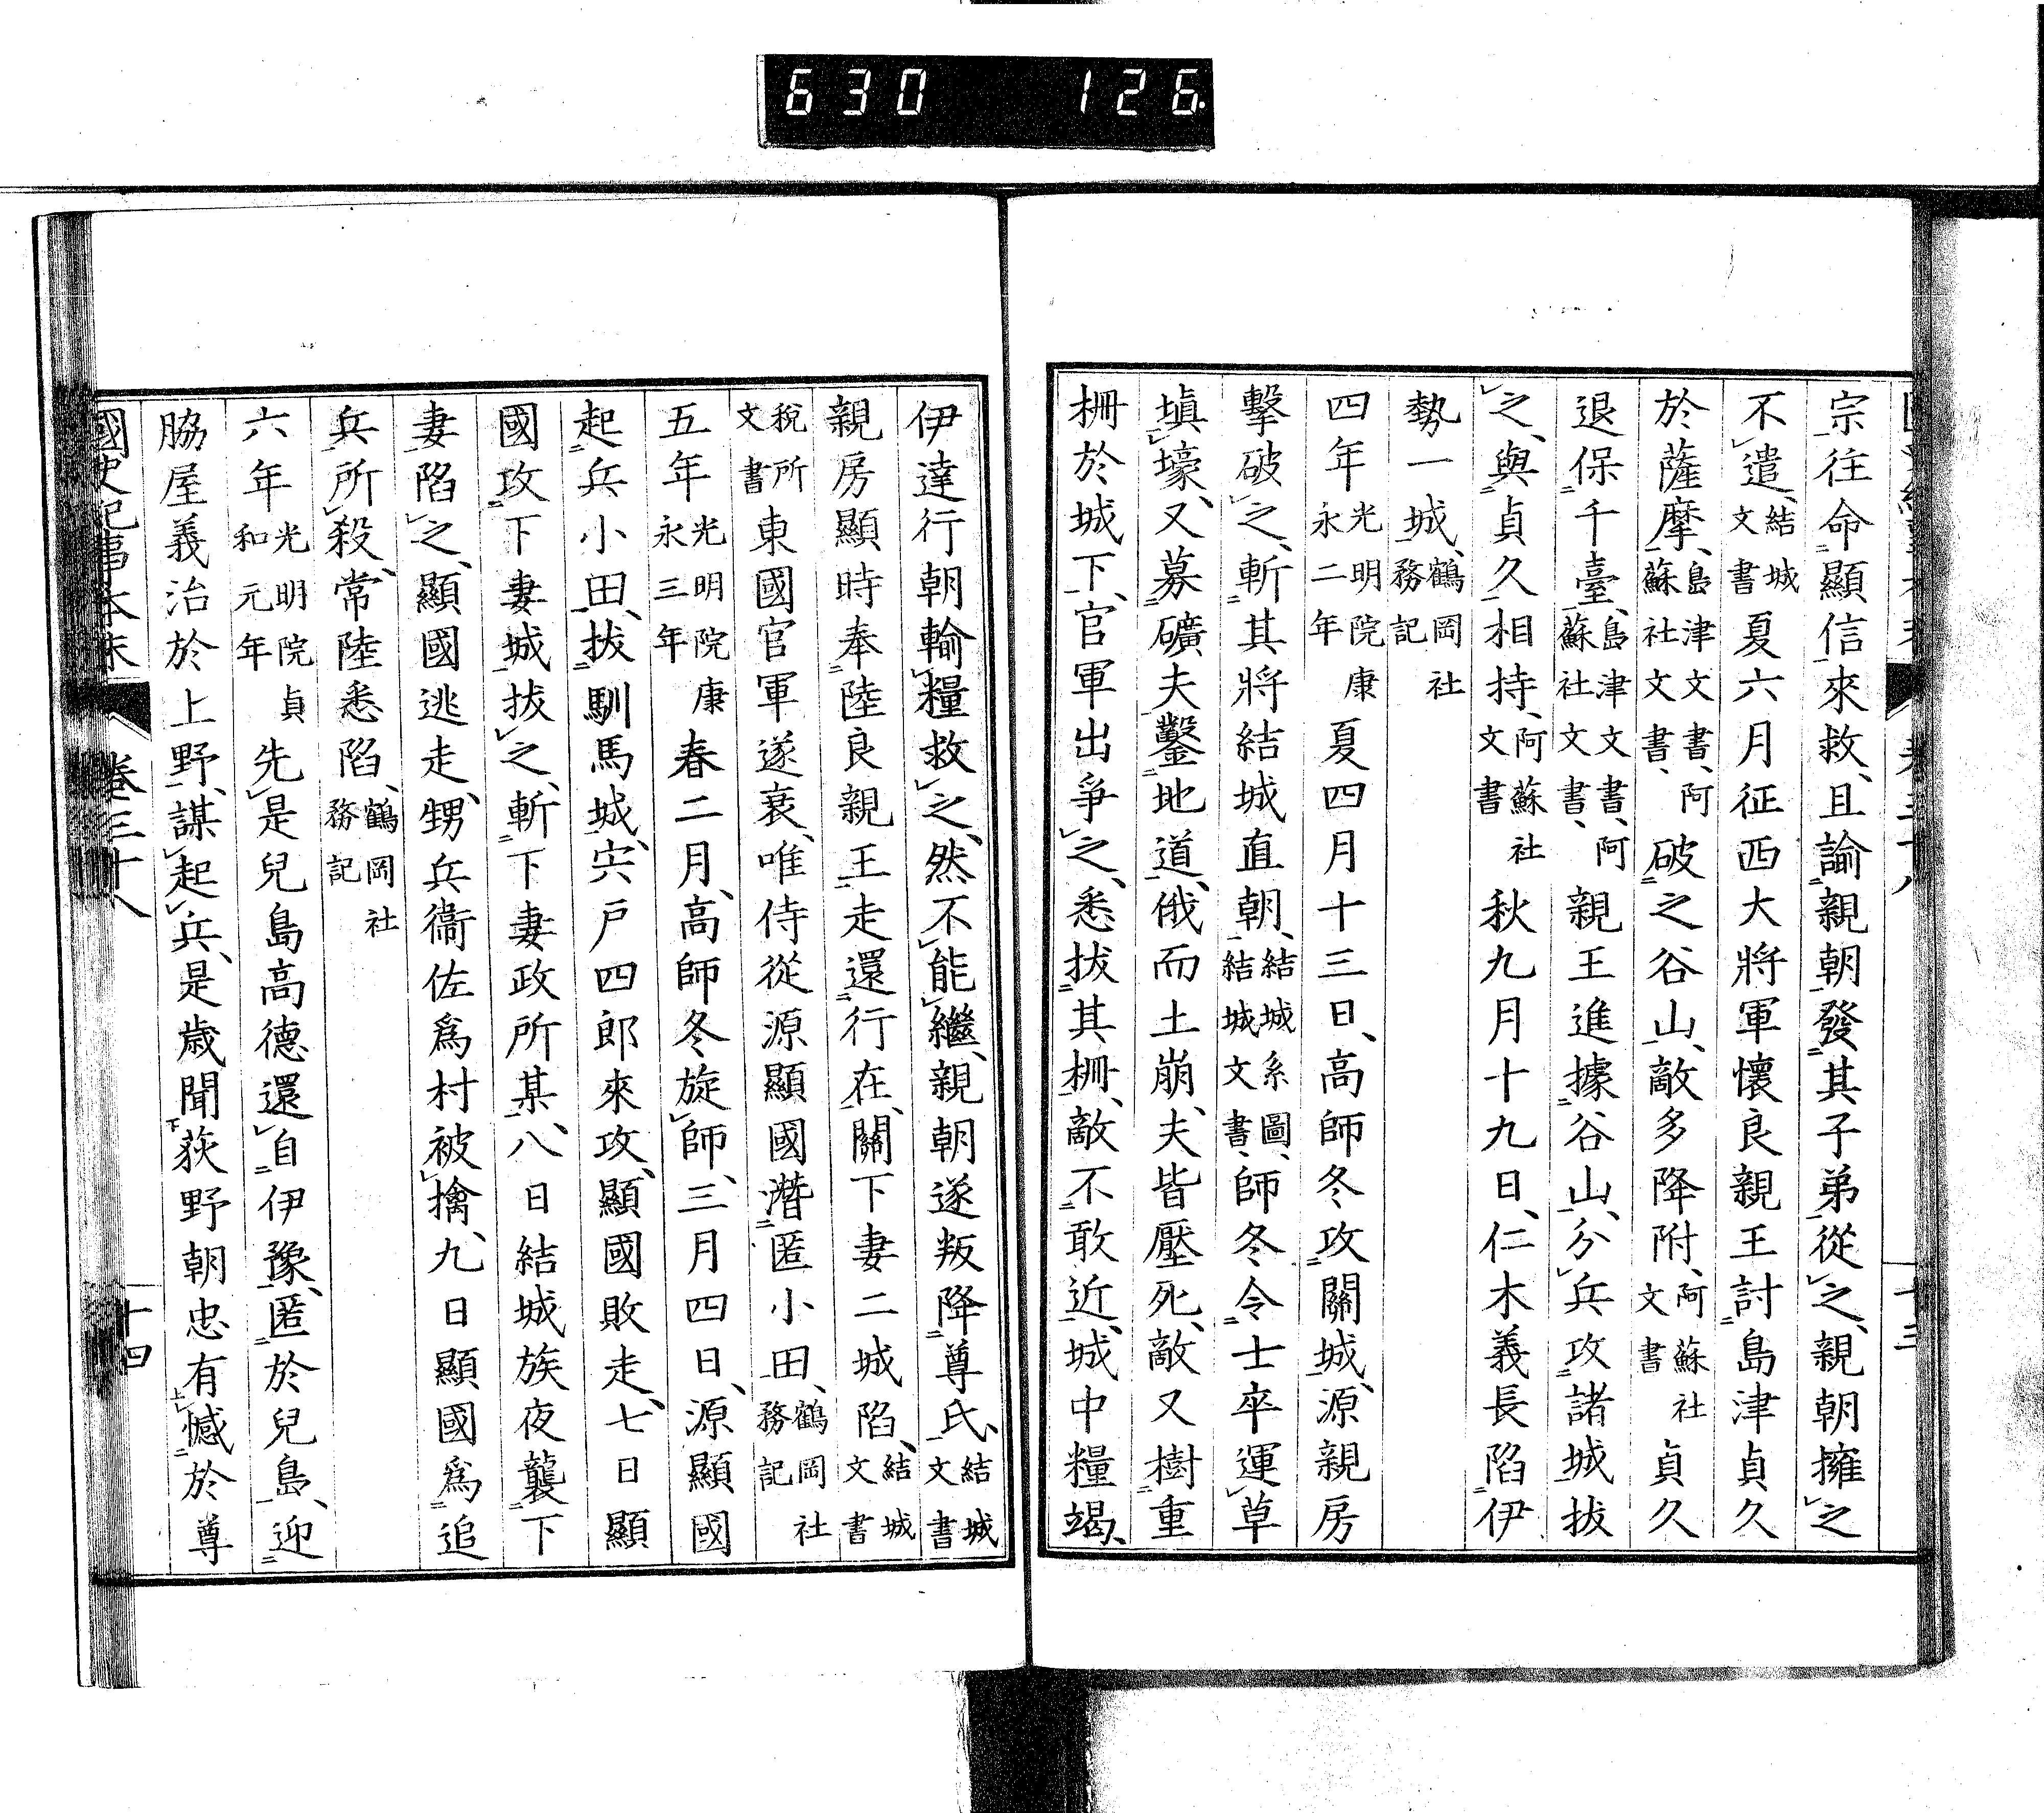 630 126
宗往命顯信來救、且諭親朝發其子弟從之、親朝擁之
不遣、結城文書夏六月征西大將軍懷良親王討島津貞久
於薩摩、島津文書、阿蘇社文書、破之谷山、敵多降附、阿蘇社文書貞久
退保千臺、島津文書、阿蘇社文書、親王進據谷山、分兵攻諸城拔
之、與貞久相持、阿蘇社文書秋九月十九日、仁木義長陷伊
勢一城、鶴岡社務記
四年光明院康永二年夏四月十三日、高師冬攻關城、源親房
擊破之、斬其將結城直朝、結城系圖、結城文書、師冬令士卒運草
塡壕、又募礦夫鑿地道、俄而土崩、夫皆壓死、敵又樹重
柵於城下、官軍出爭之、悉拔其柵、敵不敢近、城中糧竭、
伊達行朝輸糧救之、然不能繼、親朝遂叛降尊氏、結城文書
親房顯時奉陸良親王走還行在、關下妻二城陷、結城文書
稅所文書東國官軍遂衰、唯侍從源顯國潛匿小田、鶴岡社務記
五年光明院康永三年春二月、高師冬旋師、三月四日、源顯國
起兵小田、拔馴馬城、宍戶四郎來攻、顯國敗走、七日顯
國攻下妻城拔之、斬下妻政所某、八日結城族夜襲下
妻陷之、顯國逃走、甥兵衞佐爲村被擒、九日顯國爲追
兵所殺、常陸悉陷、鶴岡社務記
六年光明院貞和元年先是兒島高德還自伊豫、匿於兒島、迎
脇屋義治於上野、謀起兵、是歲聞荻野朝忠有憾於尊
國史紀事本末 卷三十八 十四